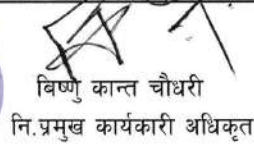 बिष्णु कान्त चौधरी
नि.प्रमुख कार्यकारी अधिकृत